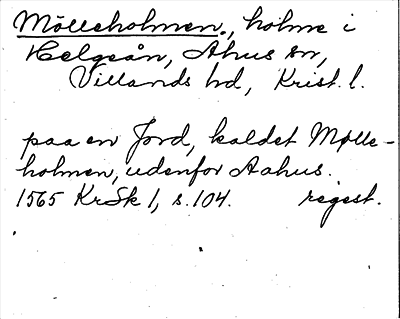 Mölleholmen., holme i
Helgeån, Åhus sn,
Villands hd, Krist. l.
paa en Jord, kaldet Mølle-
holmen, udenfor Aahus.
1565 KrSk 1, s. 104. regest.